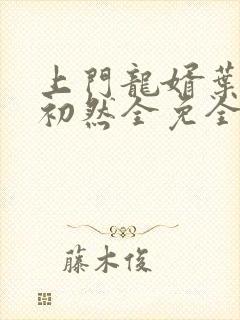 上門龍婿葉
初然全免全
藤木俊